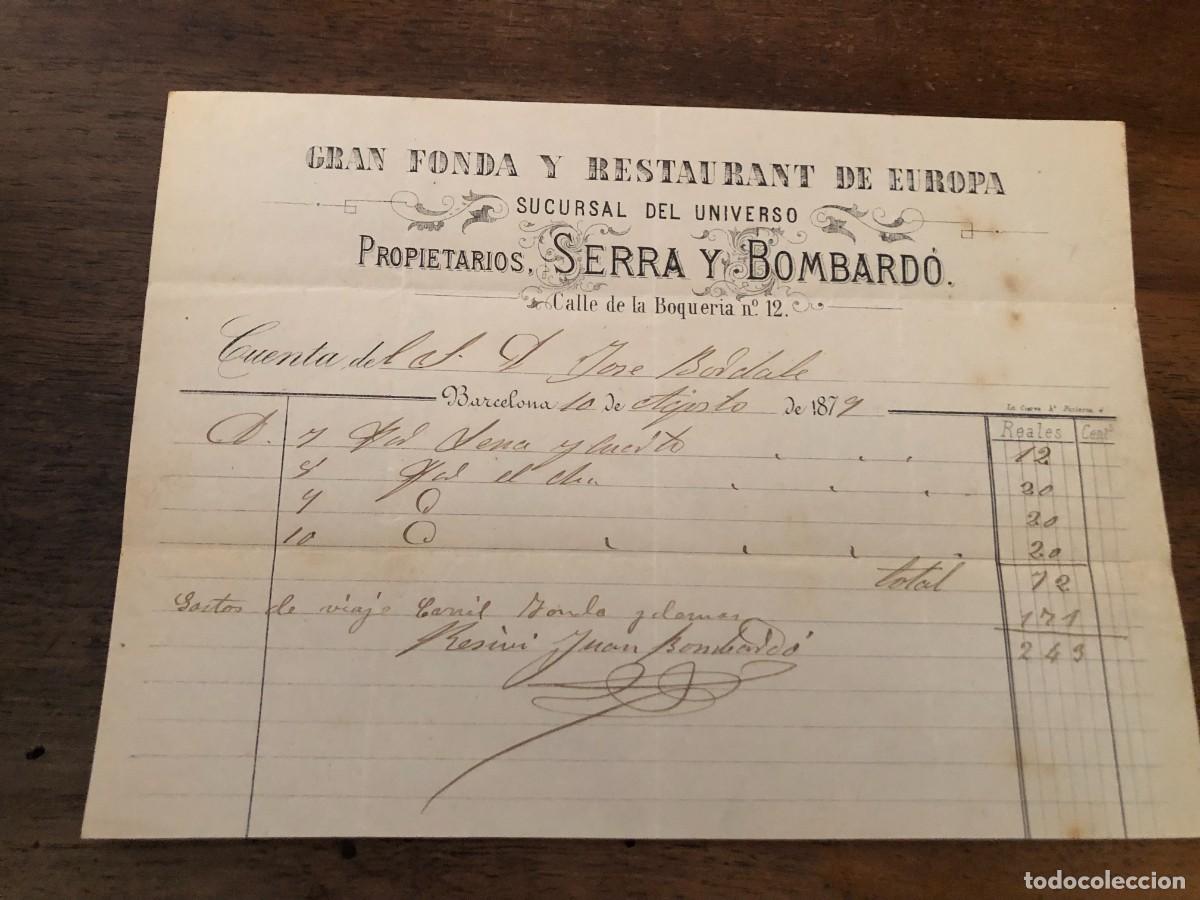 GRAN FONDA Y RESTAURANT DE EUROPA
SUCURSAL DEL UNIVERSO
PROPIETARIOS, SERRA Y BOMBARDÓ.
Calle de la Boqueria nº 12.
Cuenta del S. D Jose Bordale
Barcelona 10 de Agosto de 1879
Reales Centˢ
D. 7 Por Sena y cuarto 12
8 Por el dia 20
9 20
10 20
total 72
Gastos de viaje Carril Fonda y demas 171
Resivi Juan Bombardó 243
todocoleccion